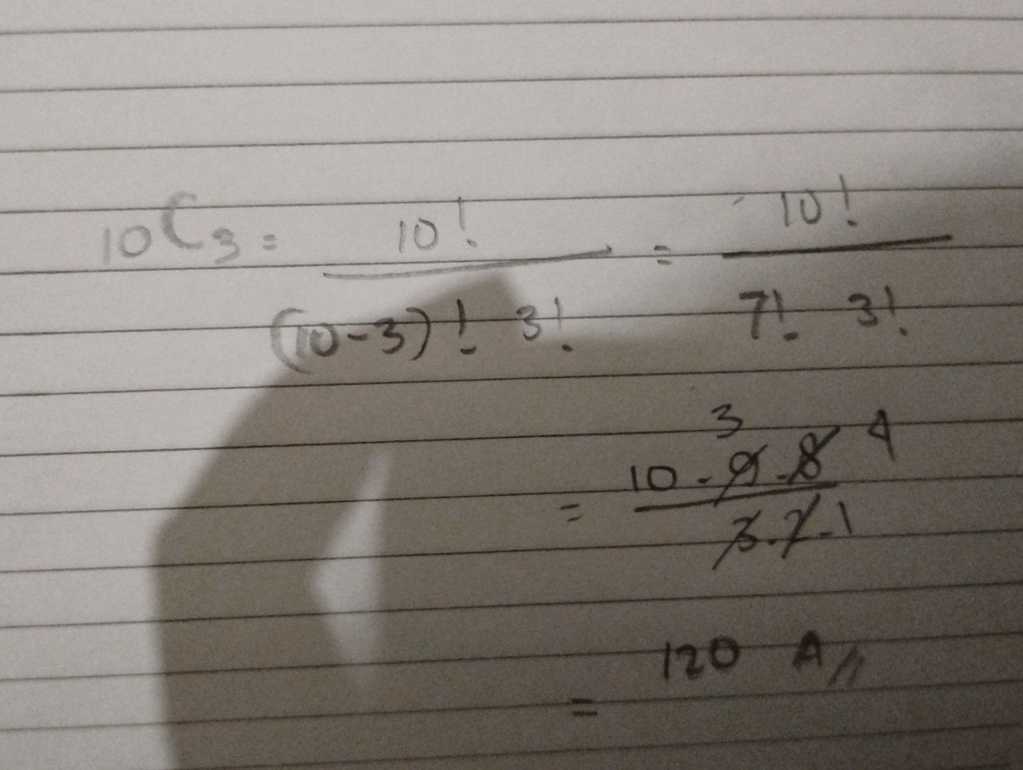 10C3 = 10! / (10-3)! 3! = 10! / 7! 3!
3 4
= 10.9.8 / 3.2.1
= 120 A//